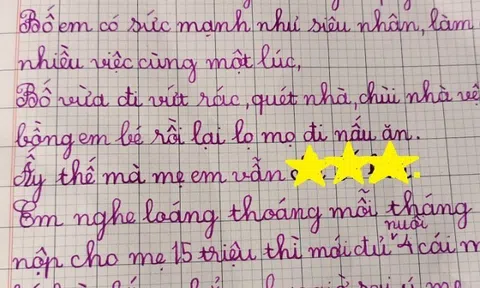 Bố em có sức mạnh như siêu nhân, làm
nhiều việc cùng một lúc,
Bố vừa đi vứt rác, quét nhà, chùi nhà vệ
bồng em bé rồi lại lọ mọ đi nấu ăn.
Ấy thế mà mẹ em vẫn
Em nghe loáng thoáng mỗi tháng
nuôi
nộp cho mẹ 15 triệu thì mới đủ 4 cái m